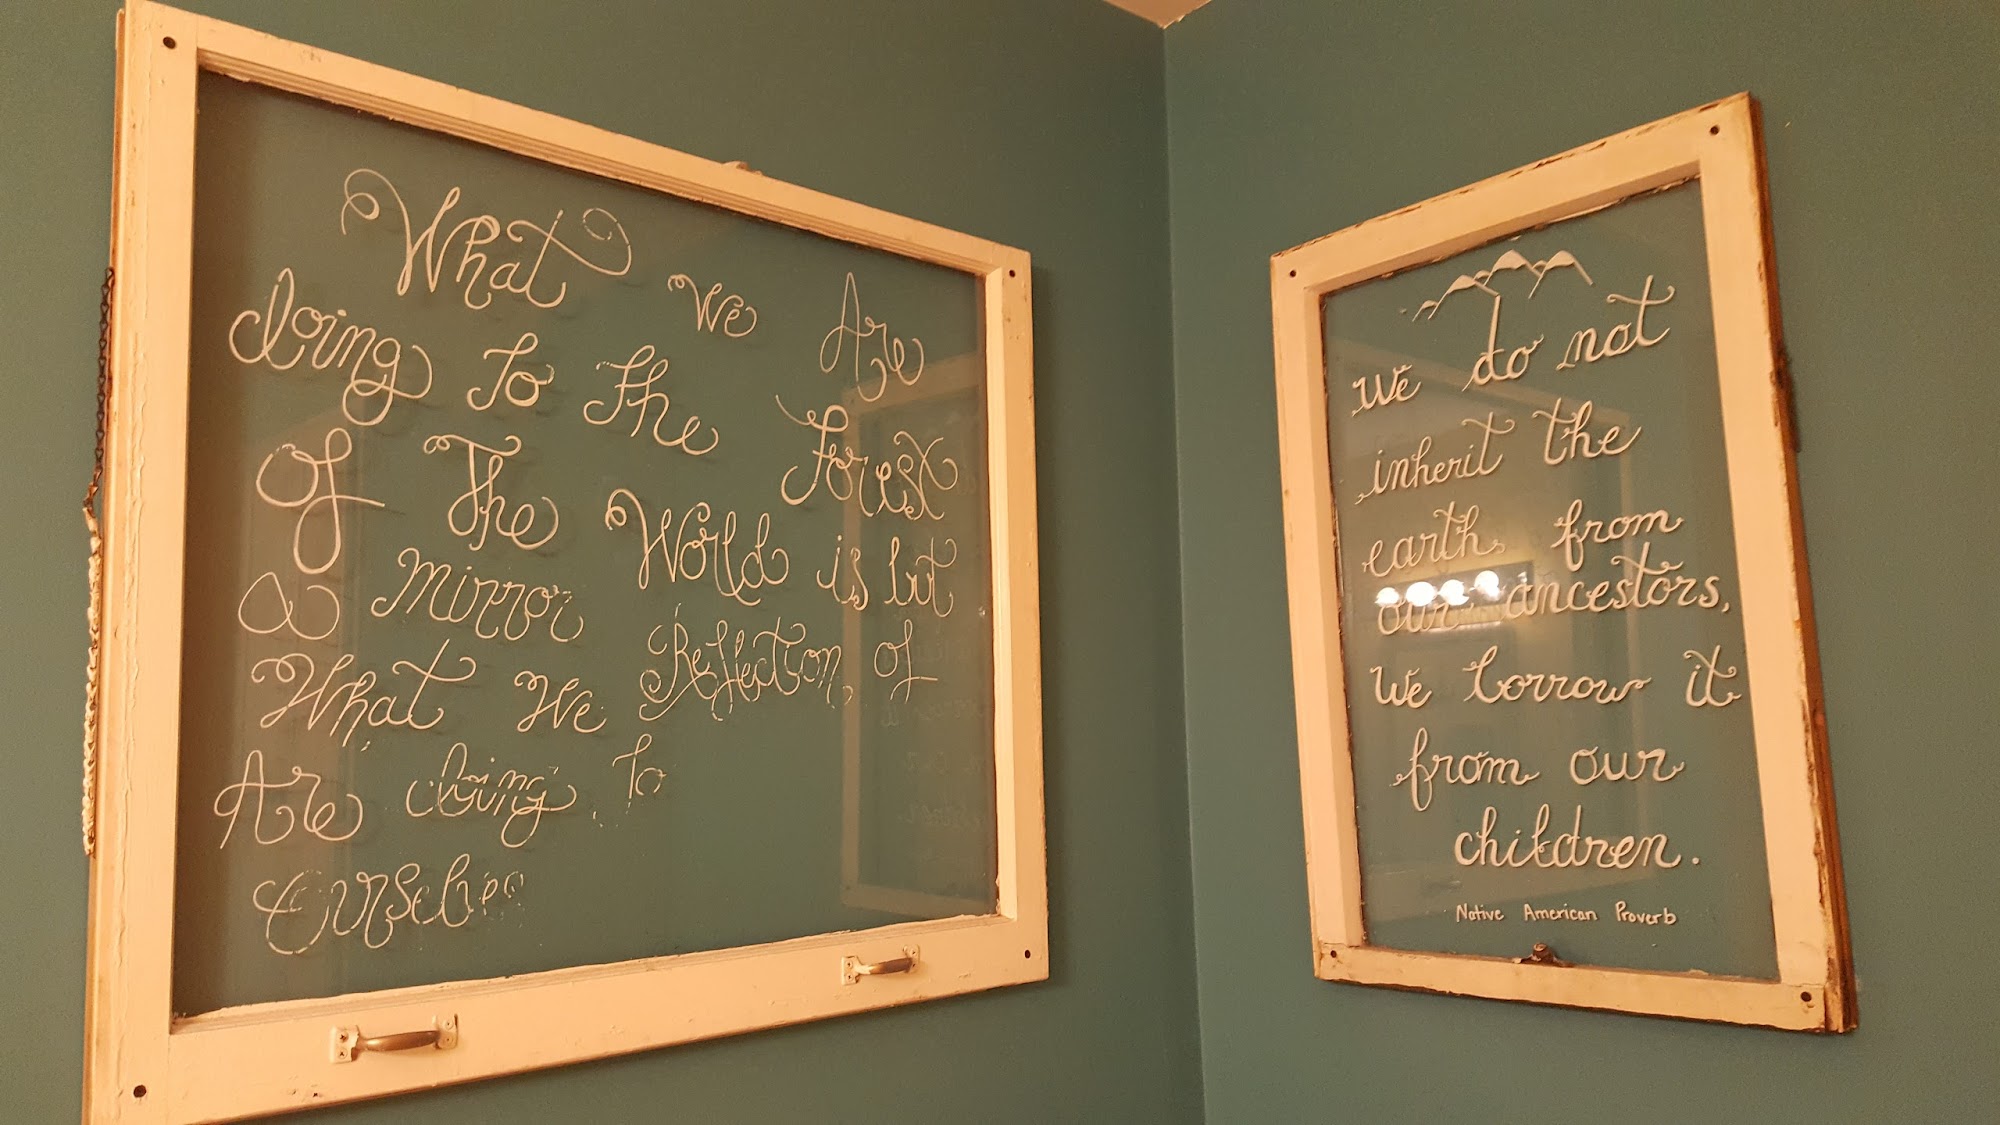 What We Are
doing To The Forest
Of The World is but
a Mirror Reflection of
What We
Are doing To
Ourselves
We do not
inherit the
earth from
our ancestors,
We borrow it
from our
children.
Native American Proverb